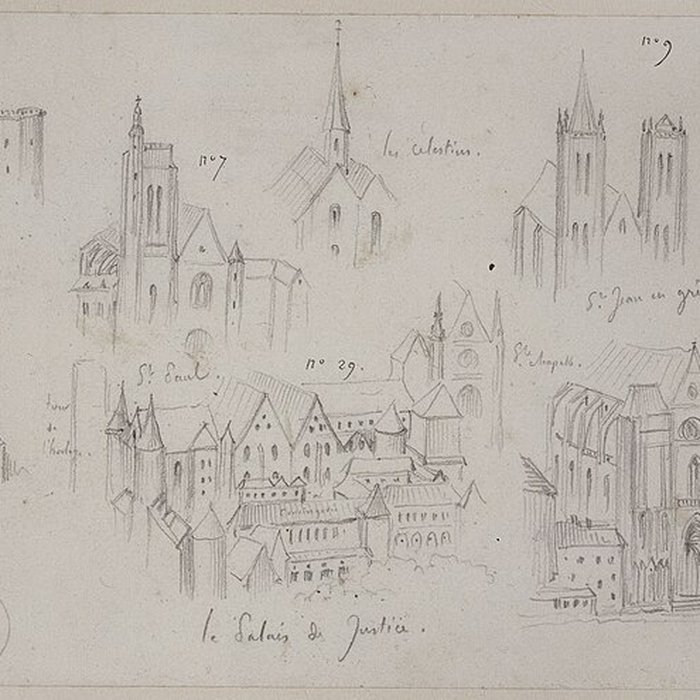 no 9
no 7
les Célestins.
St Jean en grè
St Paul.
no 29.
Ste Chapelle.
tour
de
l'horloge
le Palais de Justice.